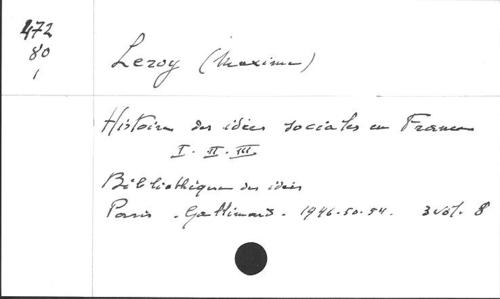 472
80
1
Leroy (Maxime)
Histoire des idées sociales en France
I. II. III
Bibliothèque des idées
Paris. Gallimard. 1946.50.54. 3 vol. 8